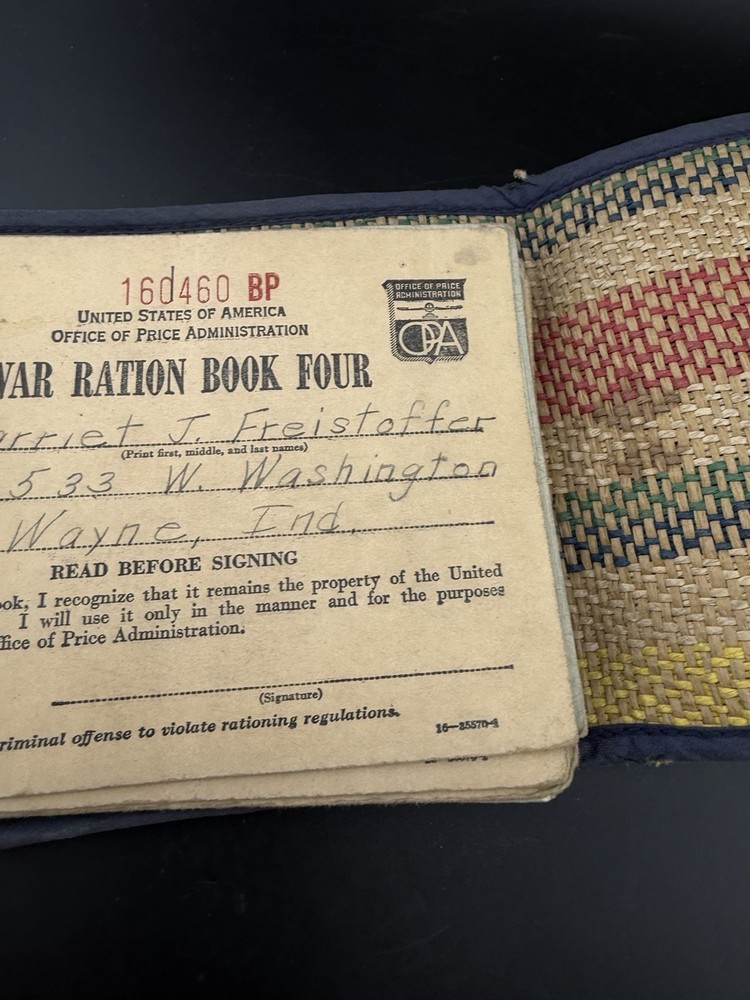 160460 BP
UNITED STATES OF AMERICA
OFFICE OF PRICE ADMINISTRATION
OFFICE OF PRICE
ADMINISTRATION
OPA
WAR RATION BOOK FOUR
rriet J. Freistoffer
(Print first, middle, and last names)
533 W. Washington
Wayne, Ind.
READ BEFORE SIGNING
ook, I recognize that it remains the property of the United
I will use it only in the manner and for the purposes
ffice of Price Administration.
(Signature)
riminal offense to violate rationing regulations.
16—35570-1